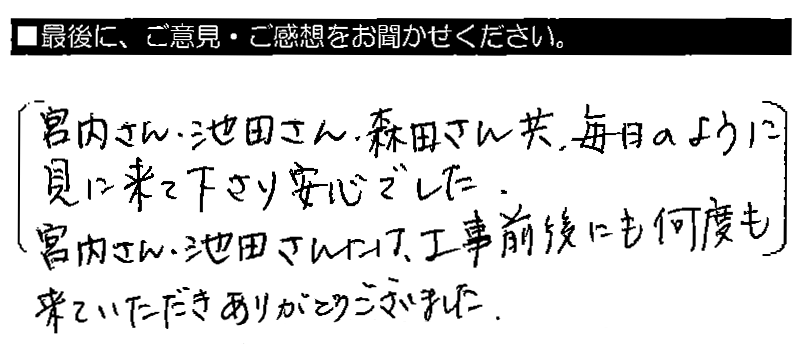 ■最後に、ご意見・ご感想をお聞かせください。
宮内さん・池田さん・森田さん共、毎日のように
見に来て下さり安心でした。
宮内さん・池田さんには、工事前後にも何度も
来ていただきありがとうございました。